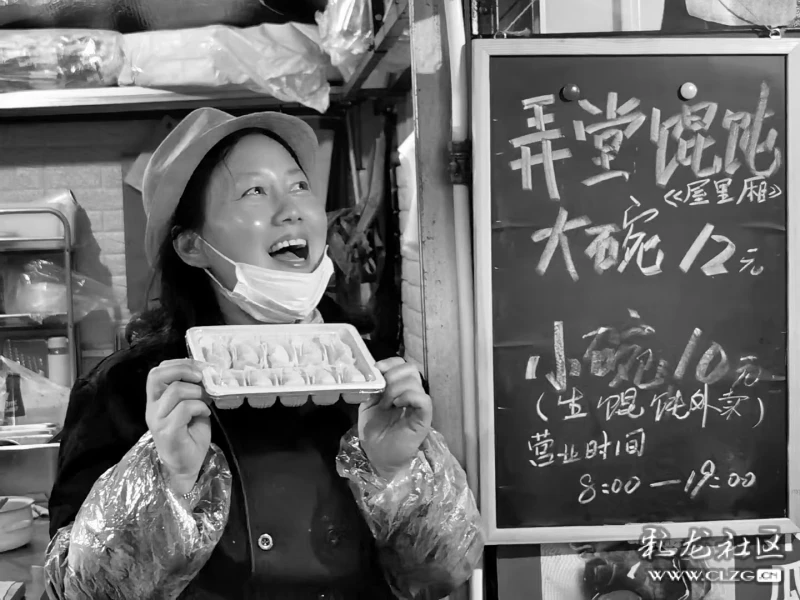 弄堂馄饨
《屋里厢》
大碗 12元
小碗 10元
(生馄饨外卖)
营业时间
8:00—19:00
彩龙社区
WWW.CLZG.CN